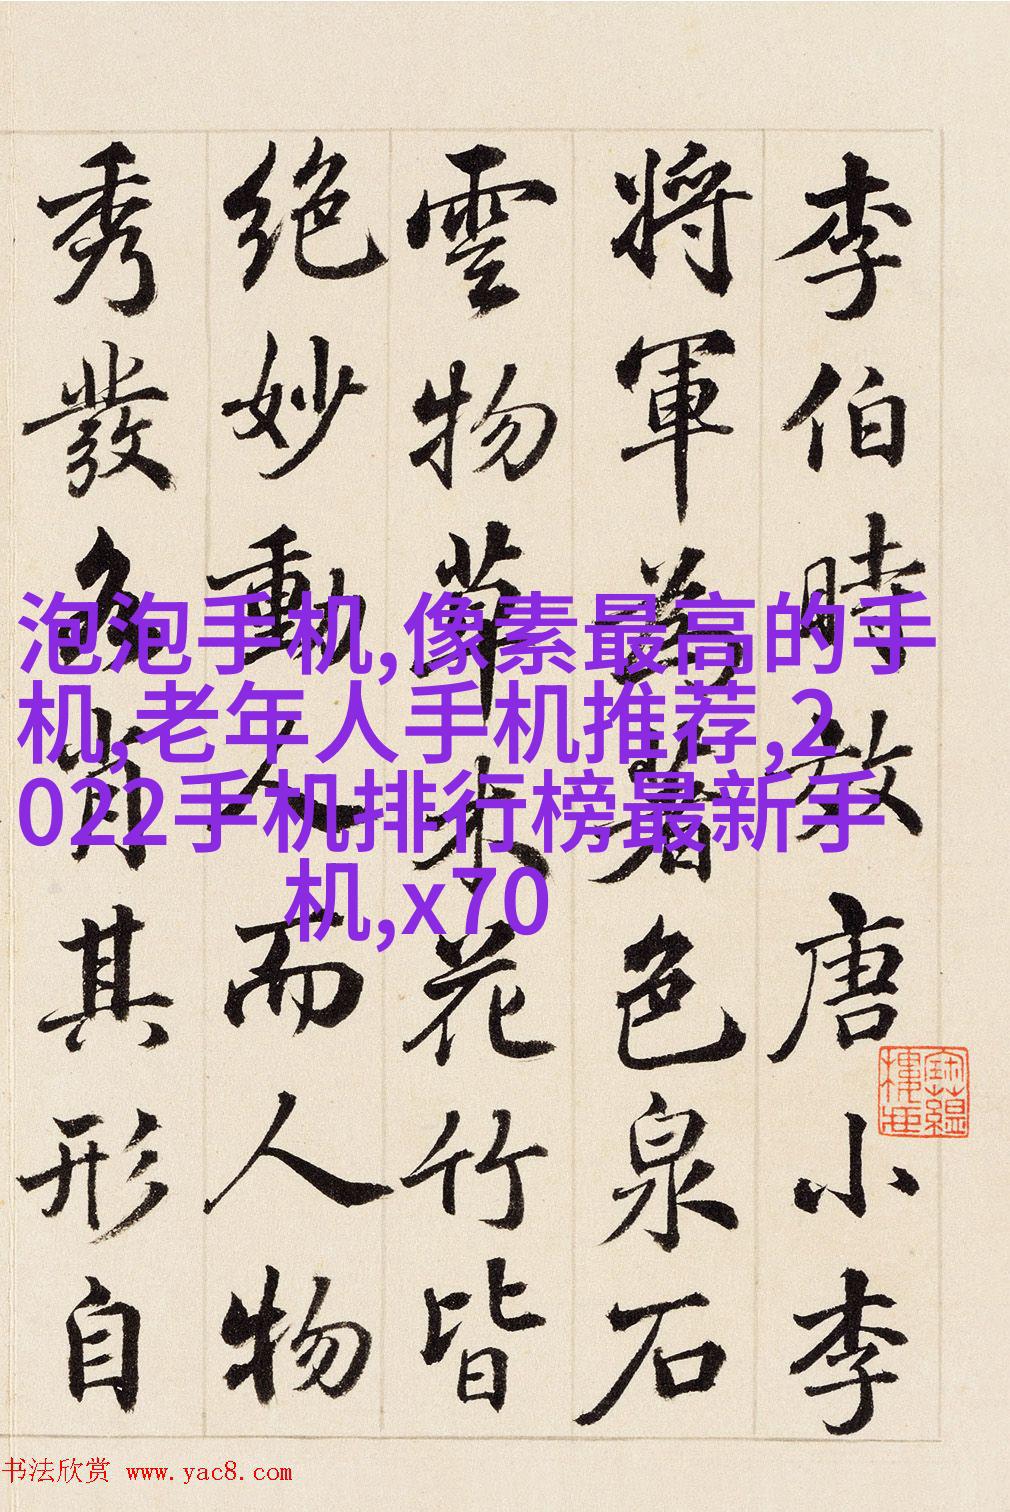 李伯時效唐小李
將軍為著色泉石
雲物草木花竹皆
絶妙動人而人物
秀發各肖其形自
泡泡手机,像素最高的手
机,老年人手机推荐,2
022手机排行榜最新手
机,x70
书法欣赏 www.yac8.com